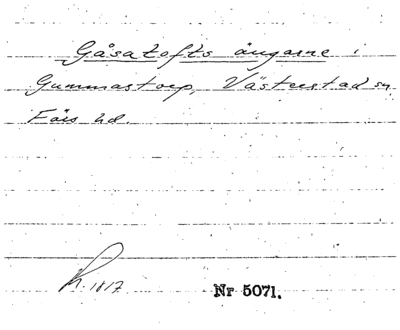 Gåsatofts ängarne i
Gummastorp, Västerstad sn
Färs hd.
R. 1817
Nr 5071.